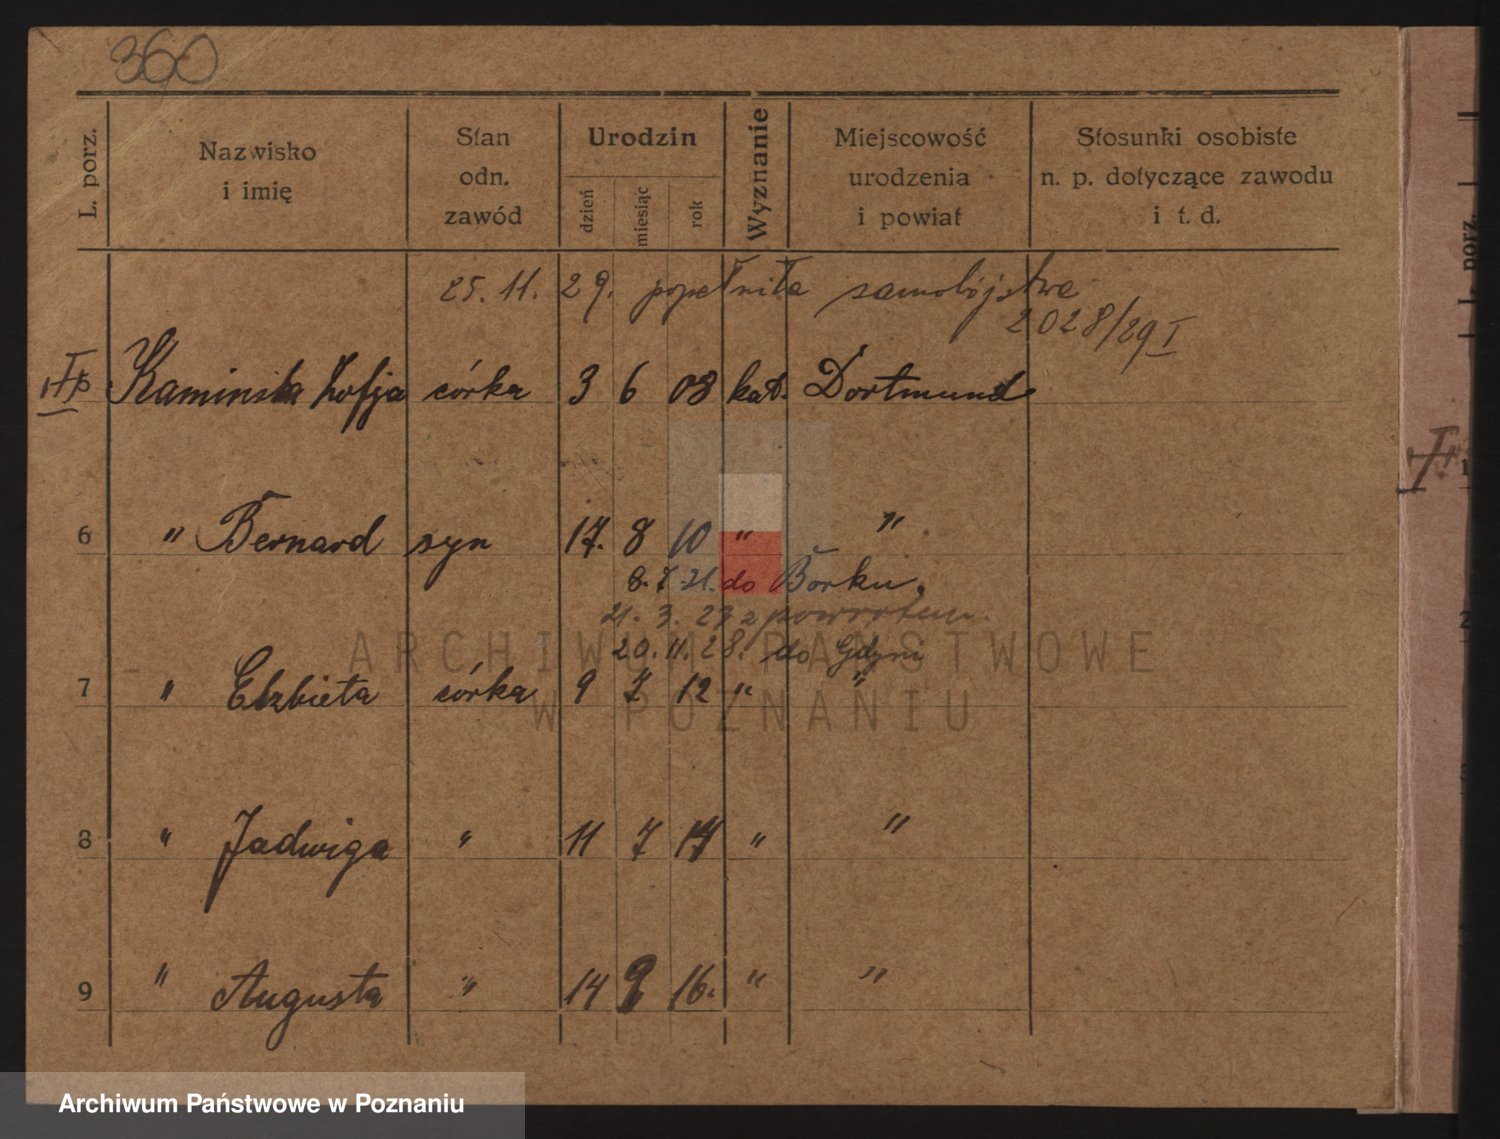 360
L. porz.
Nazwisko
i imię
Stan
odn.
zawód
Urodzin
dzień
miesiąc
rok
Wyznanie
Miejscowość
urodzenia
i powiat
Stosunki osobiste
n. p. dotyczące zawodu
i t. d.
25. 11. 29. popełniła samobójstwo
2028/29 I
5 Kaminska Zofja córka 3 6 08 kat. Dortmund
6 " Bernard syn 17. 8 10 " "
8. 7 21. do Borku.
21. 3. 27 z powrotem.
20. 11. 28. do Gdyni
7 " Elzbieta córka 9 7 12 " "
8 " Jadwiga " 11 7 14 " "
9 " Augusta " 14 9 16. " "
ARCHIWUM PAŃSTWOWE
W POZNANIU
L. porz.
1
2
Archiwum Państwowe w Poznaniu